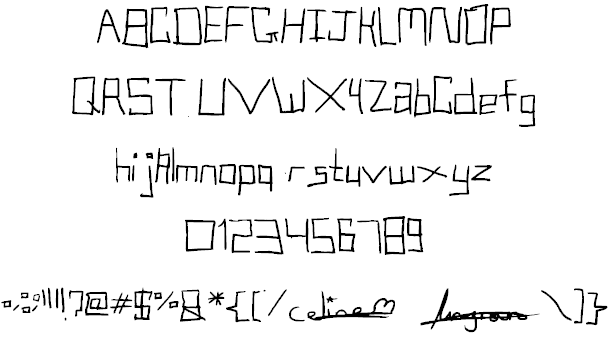 ABCDEFGHIJKLMNOP
QRSTUVWXYZabcdefg
hijklmnopq rstuvwxyz
0123456789
.,:;'"!?@#$%&*{[/celinem \]}